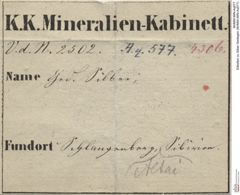 K.K. Mineralien-Kabinett.
V.d.N. 2502. A.q. 577. 4306.
Name Ged. Silber.
Fundort Schlangenberg, Sibirien.
Altai